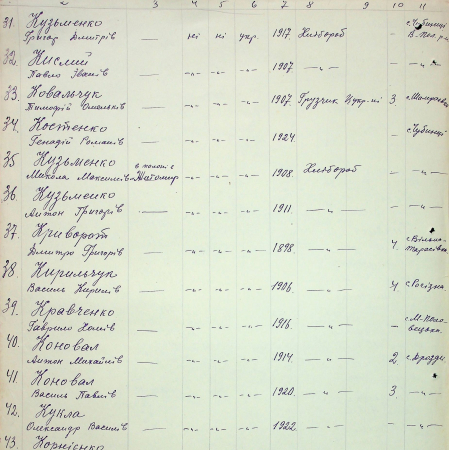 2 3 4 5 6 7 8 9 10 11
31. Кузьменко
Григор Дмитрів — ні ні укр. 1917 Хлібороб — с. Чубинці
32. Кислий
Павло Іванів — -"- -"- -"- 1907 — " — — -"-
33. Ковальчук
Тимофій Омельків — -"- -"- -"- 1907. Грузчик Цукр. 3
34. Костенко
Генадій Романів — -"- -"- -"- 1924. — с. Чубинці
35 Кузьменко в полоні с
Микола Максимів Житомир -"- -"- -"- 1908. Хлібороб — -"-
36. Кузьменко
Антон Григорів — -"- -"- -"- 1911. — " — — -"-
37. Криворот с. Вільно-
Дмитро Григорів — -"- -"- -"- 1898. — " — 4 Тарасівка
38. Кирильчук
Василь Кирилів — -"- -"- -"- 1906. — " — 4
39. Кравченко с. М-Поло-
Гаврило — -"- -"- -"- 1916. — " — — вецьке.
40. Коновал
Антон Михайлів — -"- -"- -"- 1914 — " — 2 с. Дрозди
41. Коновал
Василь Павлів — -"- -"- -"- 1920. — " — 3. -"-
42. Кукла
Олександр Василів — -"- -"- -"- 1922. — " — — -"-
43. Корнієнко